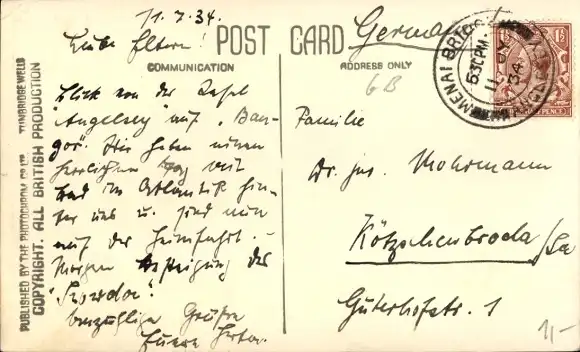 11.7.34.
Liebe Eltern!
POST CARD
Germany
COMMUNICATION
ADDRESS ONLY
6B
Blick von der Insel
"Angelsey" auf "Ban-
gor". Wir haben einen
herrlichen Tag mit
Bad im Atlantik hin-
ter uns u. sind nun
auf der Heimfahrt. -
Morgen Besteigung des
"Snowdon".
Grüsse
Euere
Familie
Dr. jur. Mohrmann
Kötzschenbroda/Sa
Güterhofstr. 1
1,-
MENAI BRIDGE
530PM
11 JY
34
ANGLESEY
PUBLISHED BY THE PHOTOCHROM CO. LTD. TUNBRIDGE WELLS
COPYRIGHT. ALL BRITISH PRODUCTION